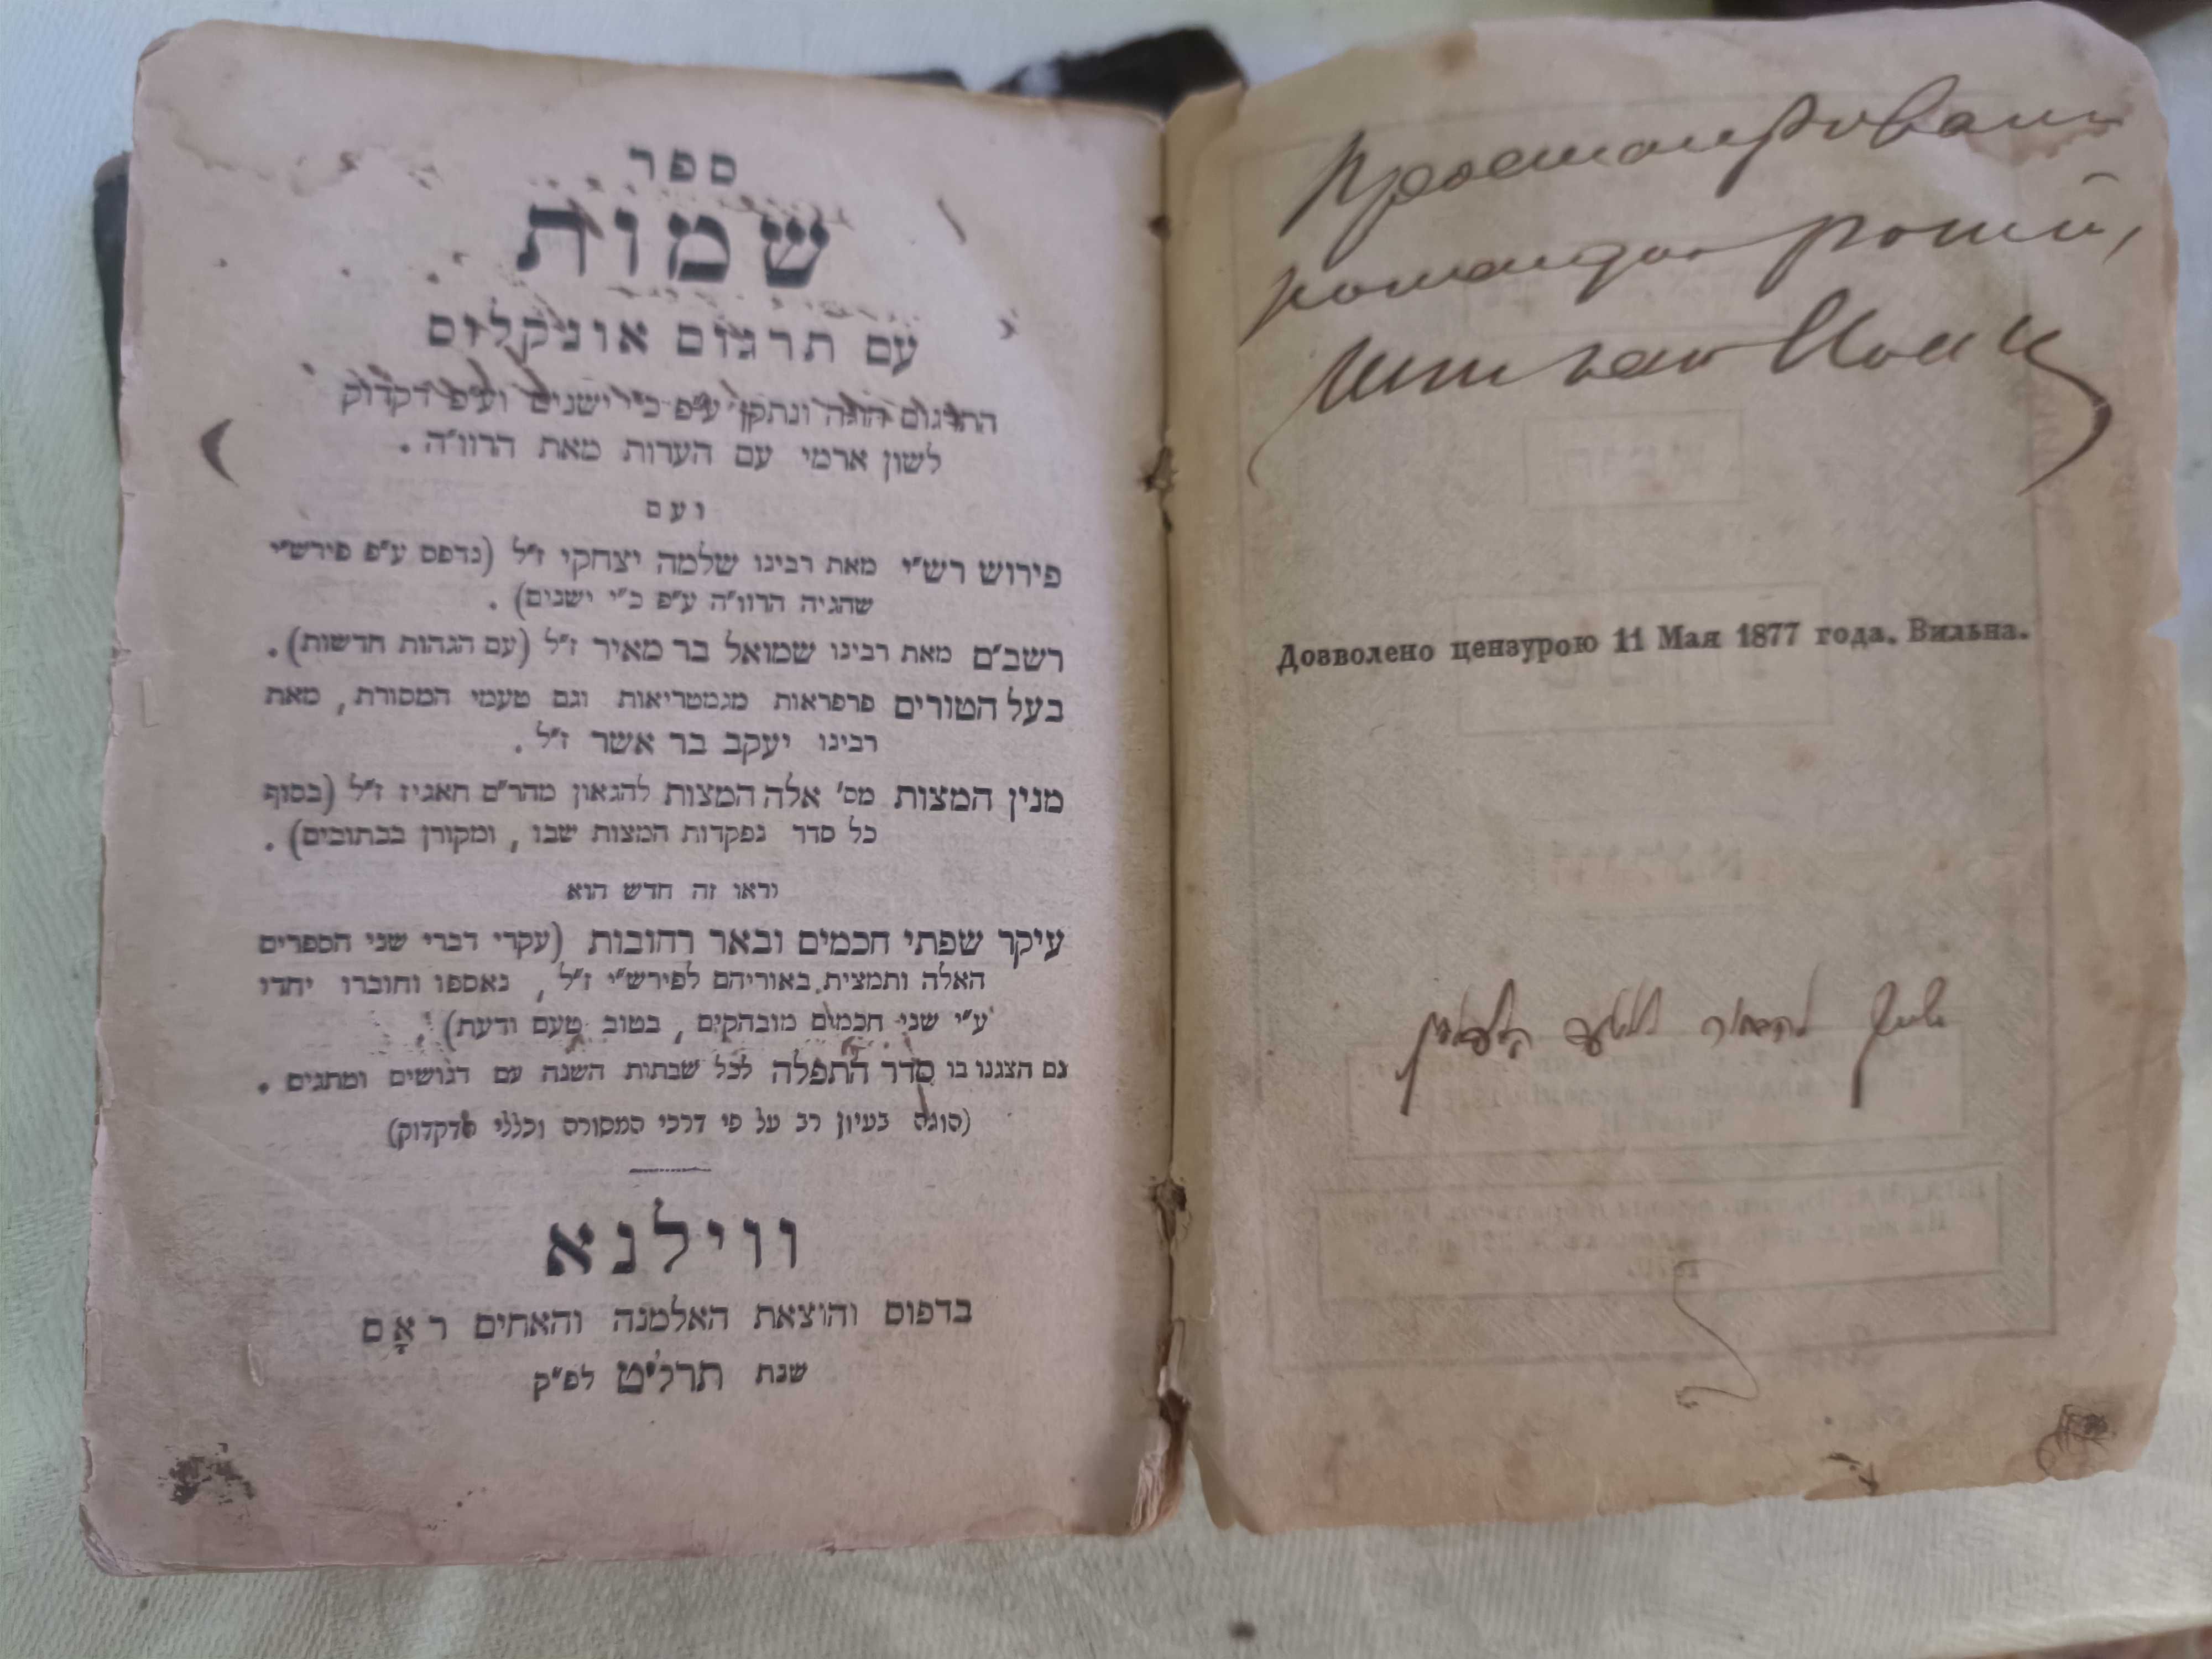 ספר
שמות
עם תרגום אונקלוס
התרגום הוגה ונתקן ע״פ כ״י ישנים וע״פ דקדוק
לשון ארמי עם הערות מאת הרוו״ה .
ועם
פירוש רש״י מאת רבינו שלמה יצחקי ז״ל (נדפס ע״פ פירש״י
שהגיה הרוו״ה ע״פ כ״י ישנים) .
רשב״ם מאת רבינו שמואל בר מאיר ז״ל (עם הגהות חדשות) .
בעל הטורים פרפראות מגמטריאות וגם טעמי המסורת , מאת
רבינו יעקב בר אשר ז״ל .
מנין המצות מס׳ אלה המצות להגאון מהר״ם חאגיז ז״ל (בסוף
כל סדר נפקדות המצות שבו , ומקורן בכתובים) .
וראו זה חדש הוא
עיקר שפתי חכמים ובאר רחובות (עקרי דברי שני הספרים
האלה ותמצית באוריהם לפירש״י ז״ל , נאספו וחוברו יחדו
ע״י שני חכמים מובהקים , בטוב טעם ודעת) .
גם הצגנו בו סדר התפלה לכל שבתות השנה עם דגושים ומתגים .
(הוגה בעיון רב על פי דרכי המסורה וכללי הדקדוק)
ווילנא
בדפוס והוצאת האלמנה והאחים ראָם
שנת תרל״ט לפ״ק
командир
Дозволено цензурою 11 Мая 1877 года. Вильна.